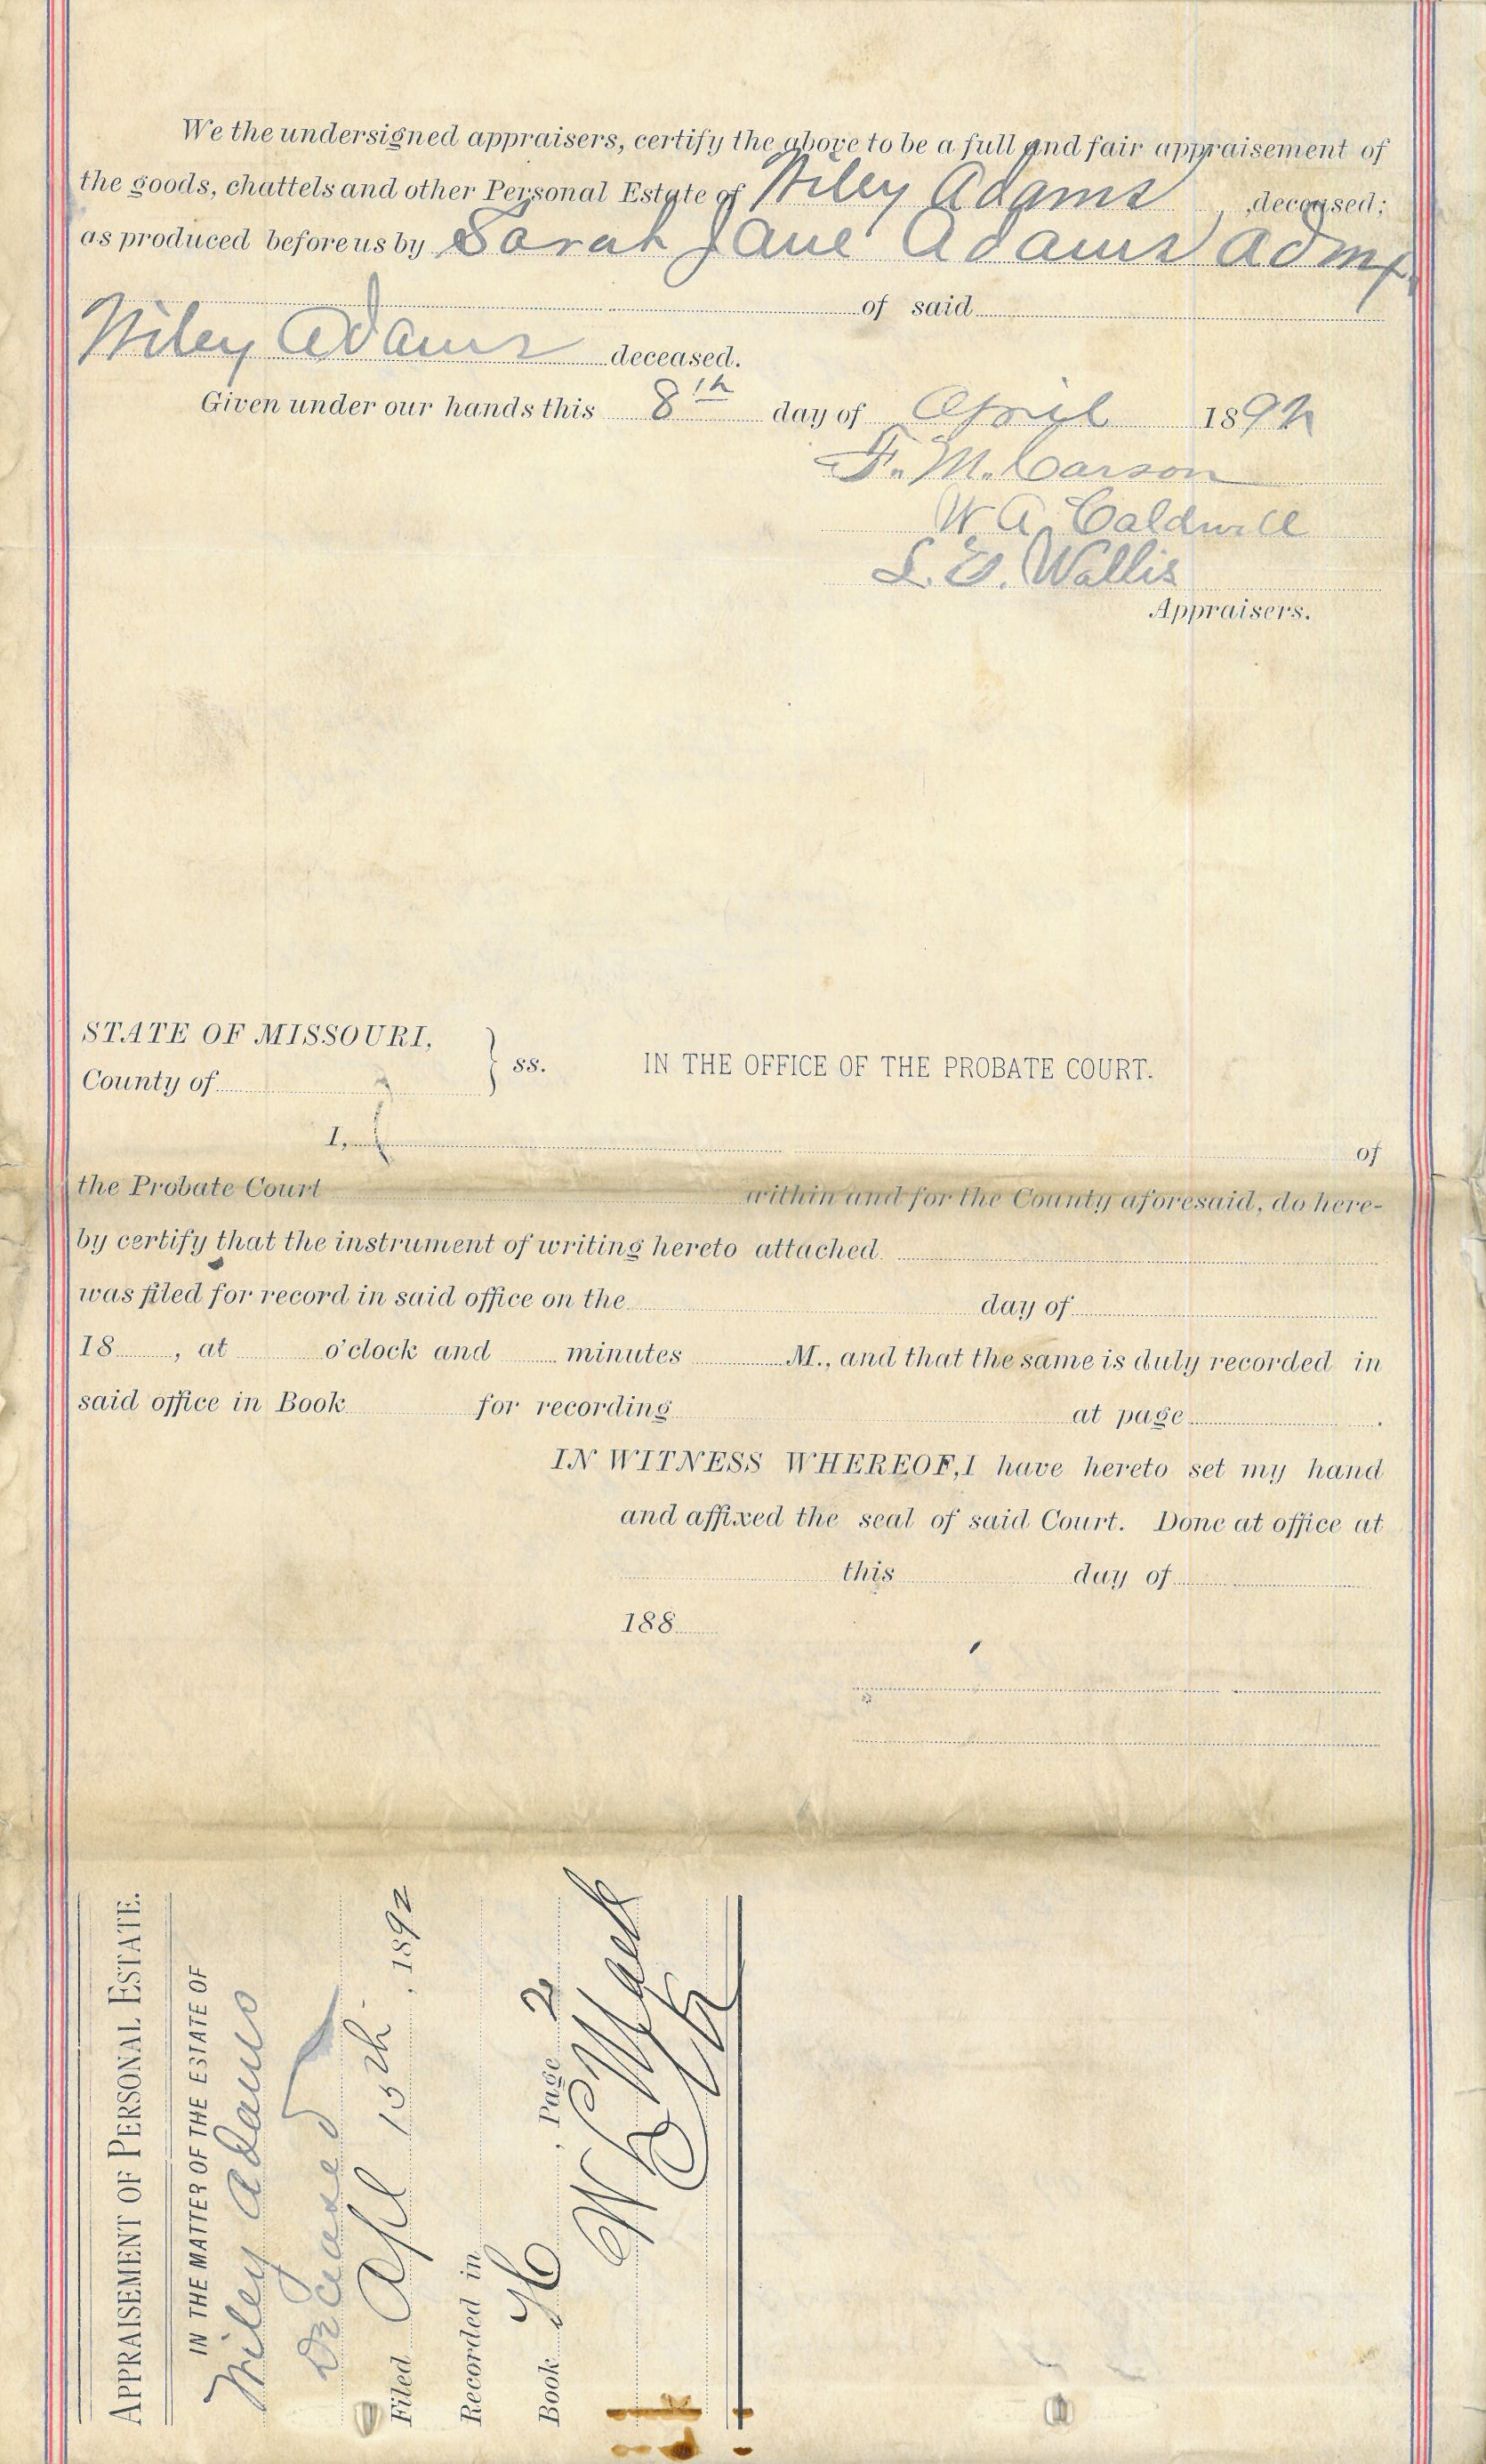 We the undersigned appraisers, certify the above to be a full and fair appraisement of
the goods, chattels and other Personal Estate of Wiley Adams , ,deceased;
as produced before us by Sarah Jane Adams Admx.
of said
Wiley Adams deceased.
Given under our hands this 8th day of April 1892
F. M. Carson
W. A. Caldwell
L. E. Wallis
Appraisers.
STATE OF MISSOURI,
County of } ss. IN THE OFFICE OF THE PROBATE COURT.
I, of
the Probate Court within and for the County aforesaid, do here-
by certify that the instrument of writing hereto attached
was filed for record in said office on the day of
18 , at o'clock and minutes M., and that the same is duly recorded in
said office in Book for recording at page .
IN WITNESS WHEREOF, I have hereto set my hand
and affixed the seal of said Court. Done at office at
this day of
188
APPRAISEMENT OF PERSONAL ESTATE.
IN THE MATTER OF THE ESTATE OF
Wiley Adams
Deceased
Filed Apl 15th , 1892
Recorded in
Book , Page 2
W